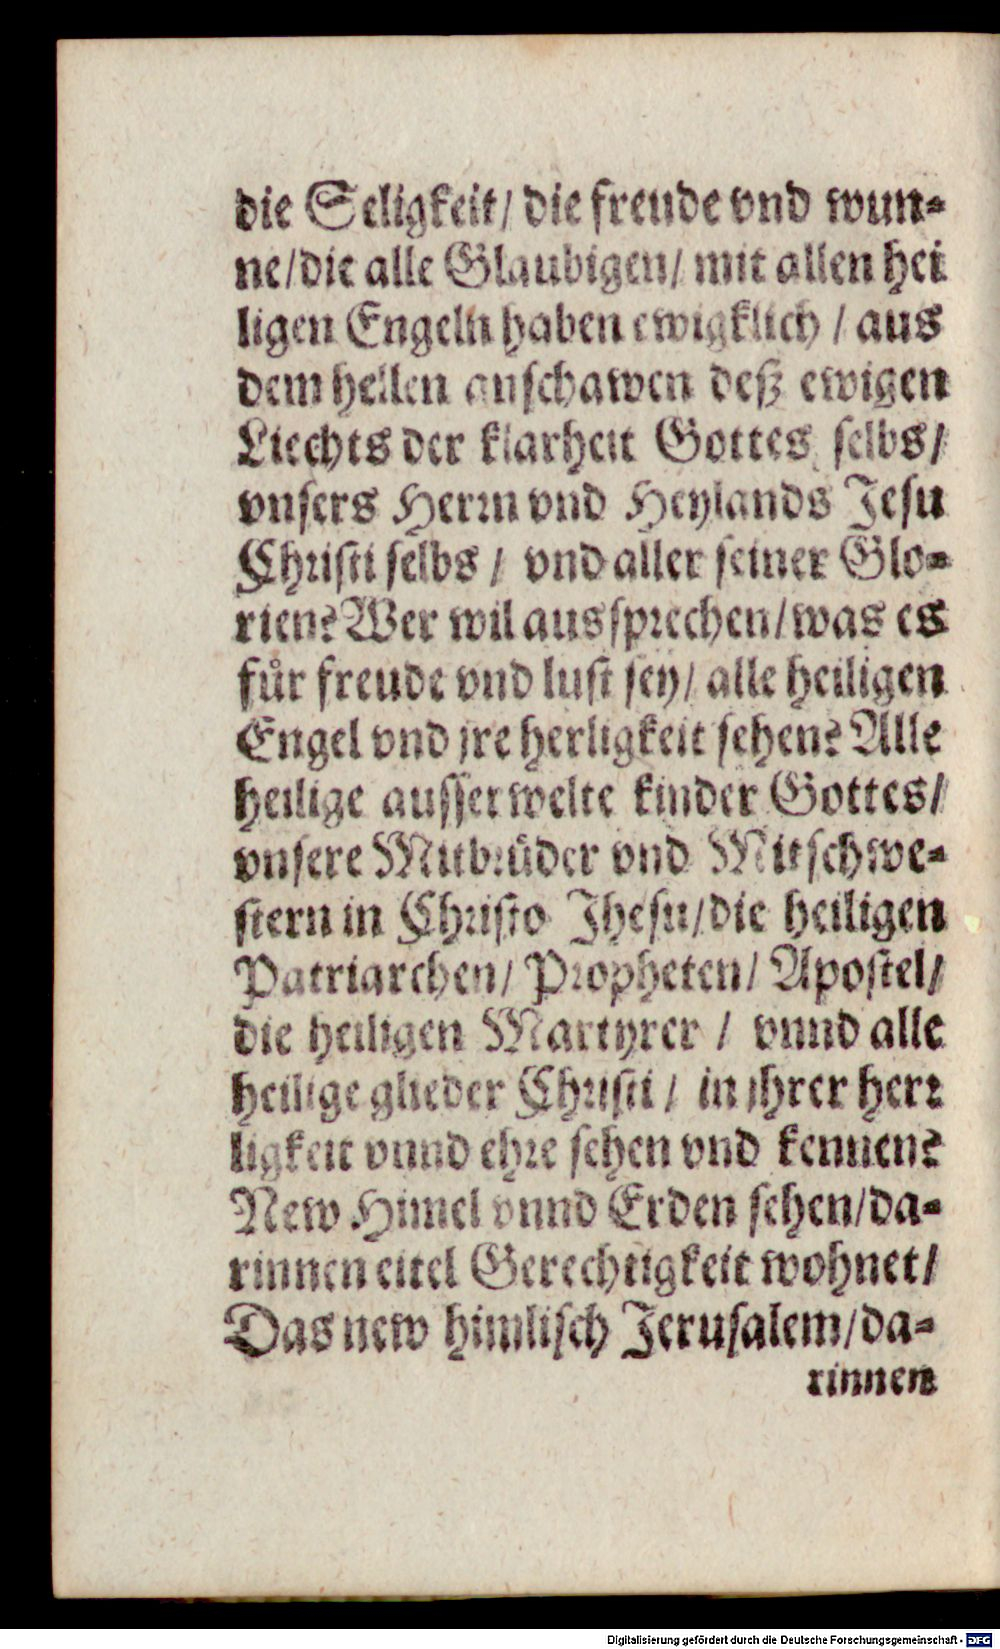 die Seligkeit/ die freude vnd wun-
ne/die alle Glaubigen/ mit allen hei
ligen Engeln haben ewigklich / aus
dem hellen anschawen deß ewigen
Liechts der klarheit Gottes selbs/
vnsers Herrn vnd Heylands Jesu
Christi selbs / vnd aller seiner Glo-
rien? Wer wil aussprechen/was es
für freude vnd lust sey/ alle heiligen
Engel vnd jre herligkeit sehen? Alle
heilige ausserwelte kinder Gottes/
vnsere Mitbrüder vnd Mitschwe-
stern in Christo Jhesu/die heiligen
Patriarchen/ Propheten/ Apostel/
die heiligen Martyrer / vnnd alle
heilige glieder Christi / in jhrer herr
ligkeit vnnd ehre sehen vnd kennen?
New Himel vnnd Erden sehen/da-
rinnen eitel Gerechtigkeit wohnet/
Das new himlisch Jerusalem/da-
rinnen
Digitalisierung gefördert durch die Deutsche Forschungsgemeinschaft - DFG